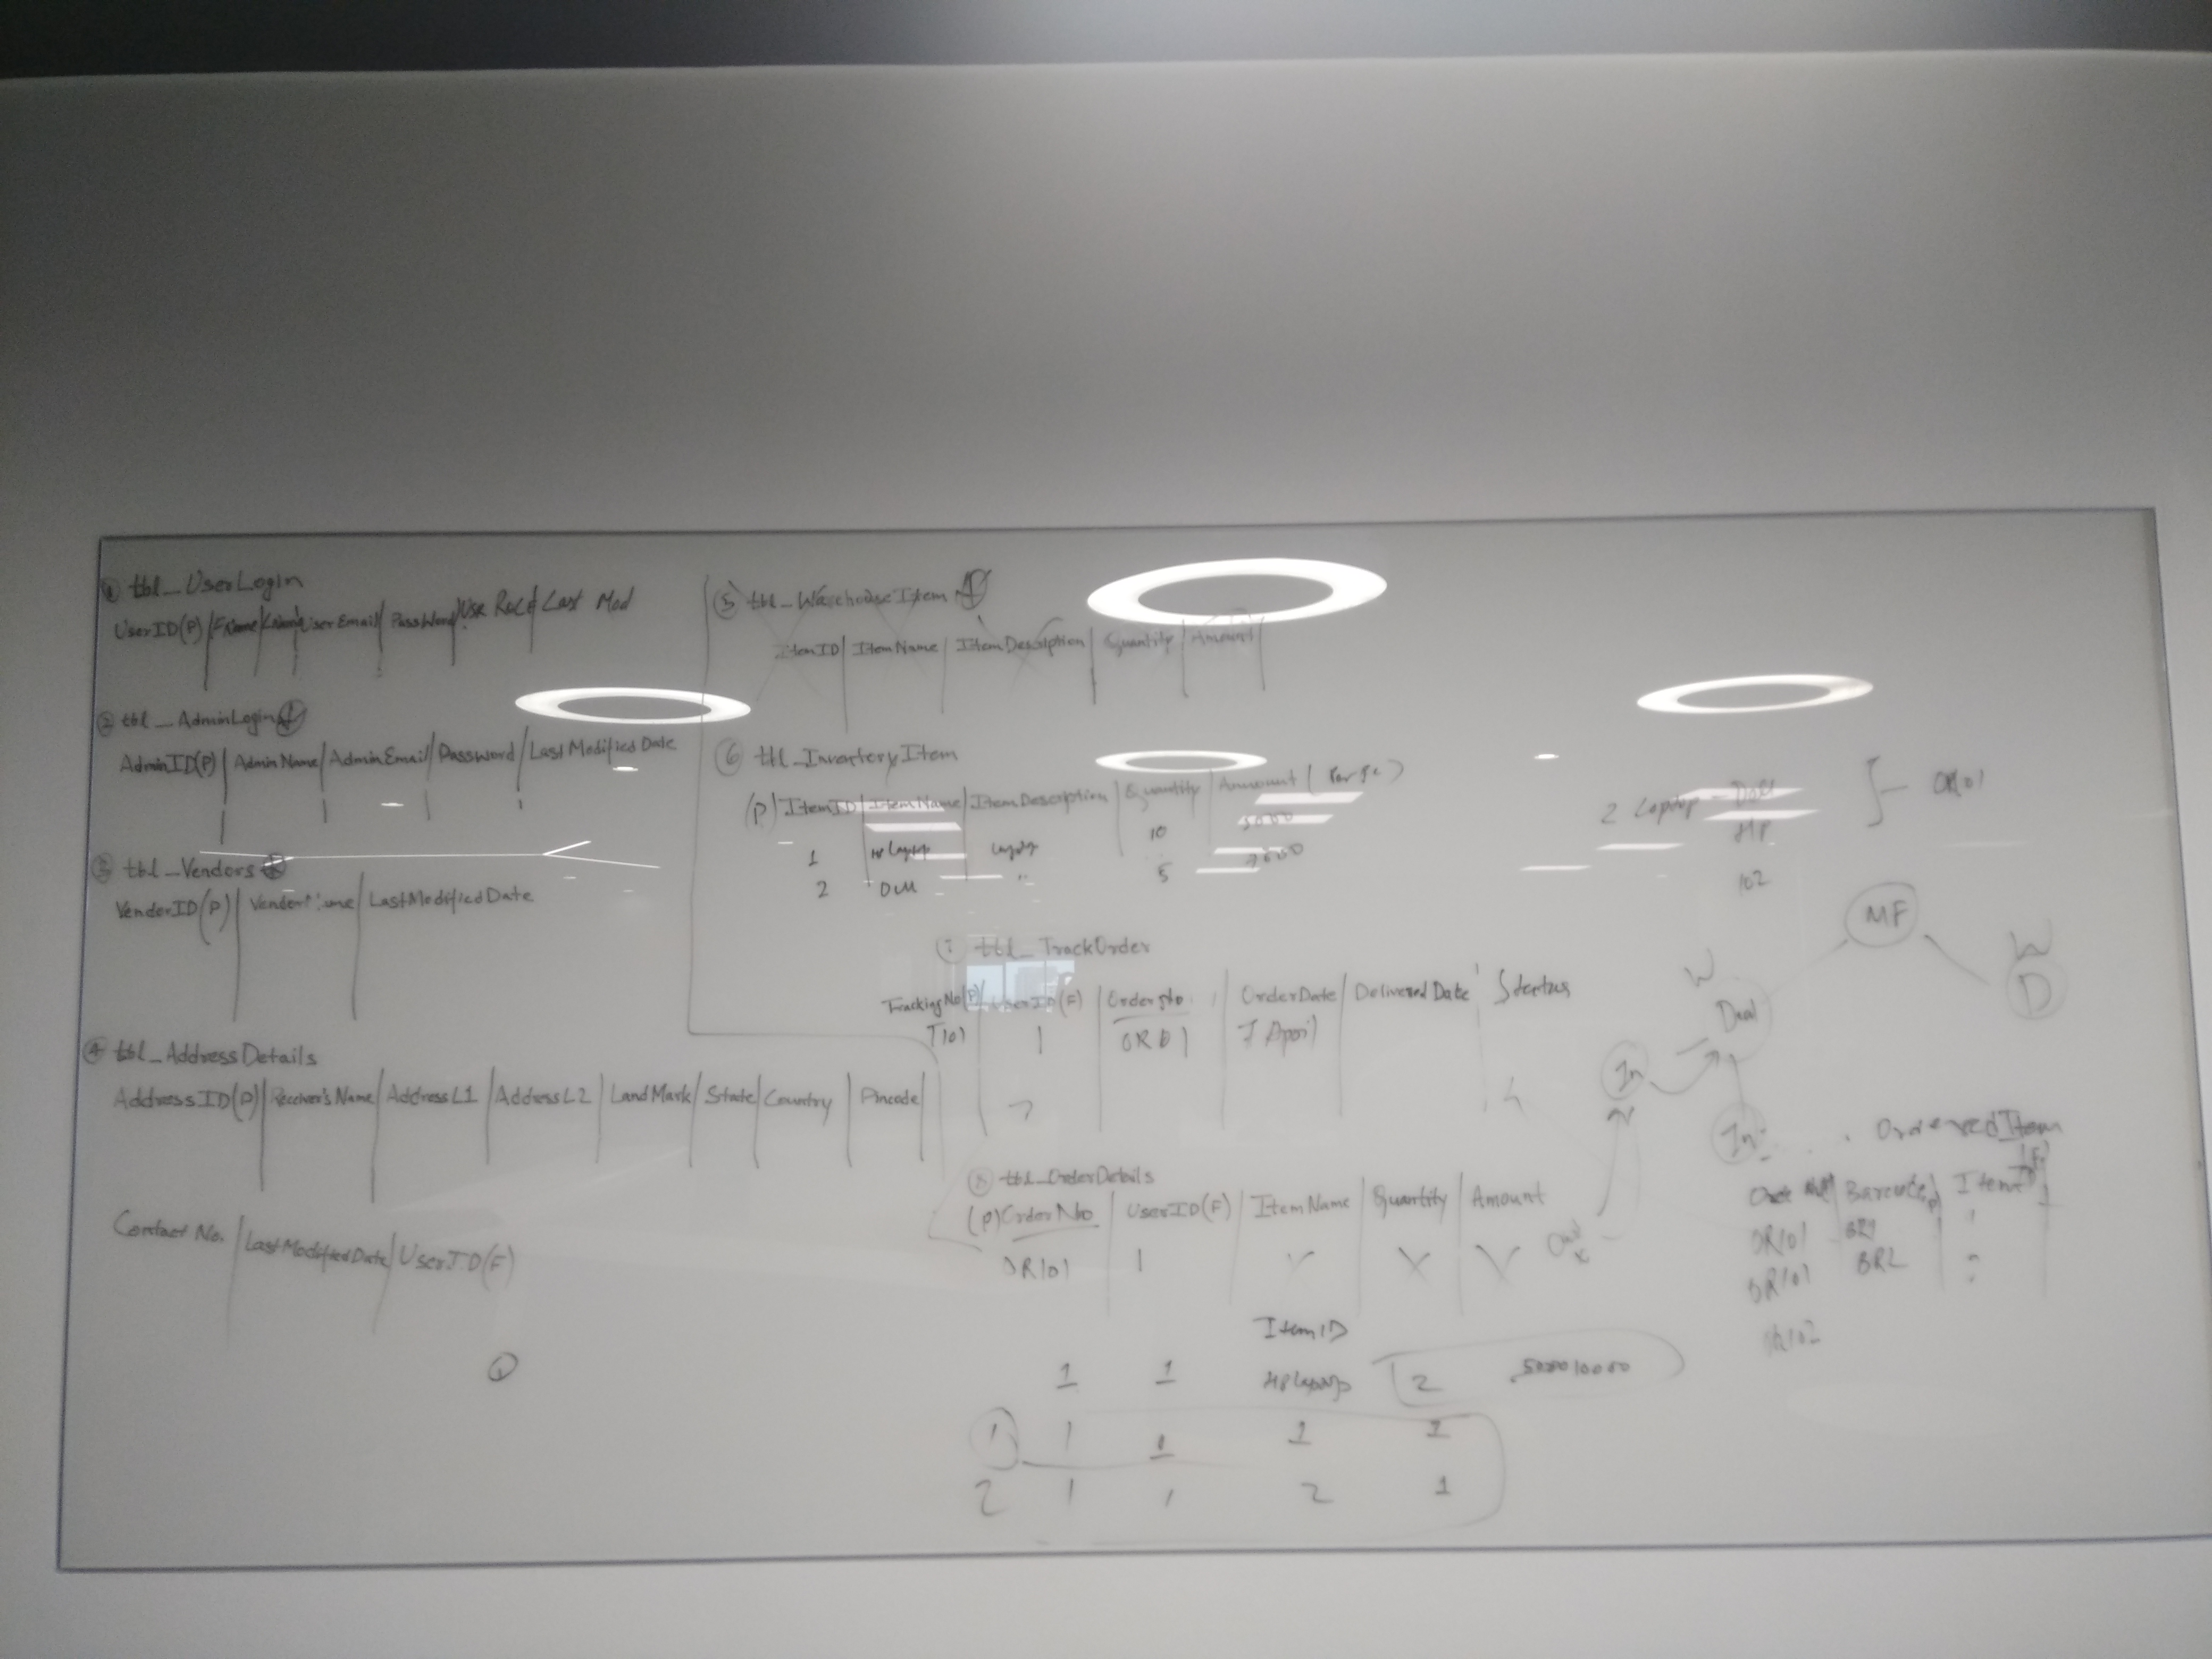 ① tbl_UserLogin
UserID(P) | FName | LName | UserEmail | PassWord | Use Role | Last Mod
② tbl_AdminLogin
AdminID(P) | AdminName | AdminEmail | Password | LastModifiedDate
③ tbl_Vendors
VendorID(P) | | LastModifiedDate
④ tbl_AddressDetails
AddressID(P) | Receiver's Name | AddressL1 | AddressL2 | LandMark | State | Country | Pincode |
Contact No. | LastModifiedDate | UserID(F)
①
⑤ tbl_WarehouseItem
ItemID | ItemName | ItemDescription | Quantity | Amount |
⑥ tbl_InventoryItem
(P) ItemID | ItemName | ItemDescription | Quantity | Amount
1 HP Laptop Laptop 10 5000
2 Dell " 5
⑦ tbl_TrackOrder
TrackingNo(P) | UserID(F) | OrderNo | OrderDate | DeliveredDate | Status
T101 1 OR101 7 April
⑧ tbl_OrderDetails
(P)OrderNo | UserID(F) | ItemName | Quantity | Amount
OR101 1
ItemID
1 1 HP Laptop 2
1 1 1 1 1
2 1 1 2 1
2 Laptop - Dell
HP
OR101
102
MF
W
W
D
In
In
Out
OrderedItem
Barcode ItemID
OR101 BR1
OR101 BR2
OR102